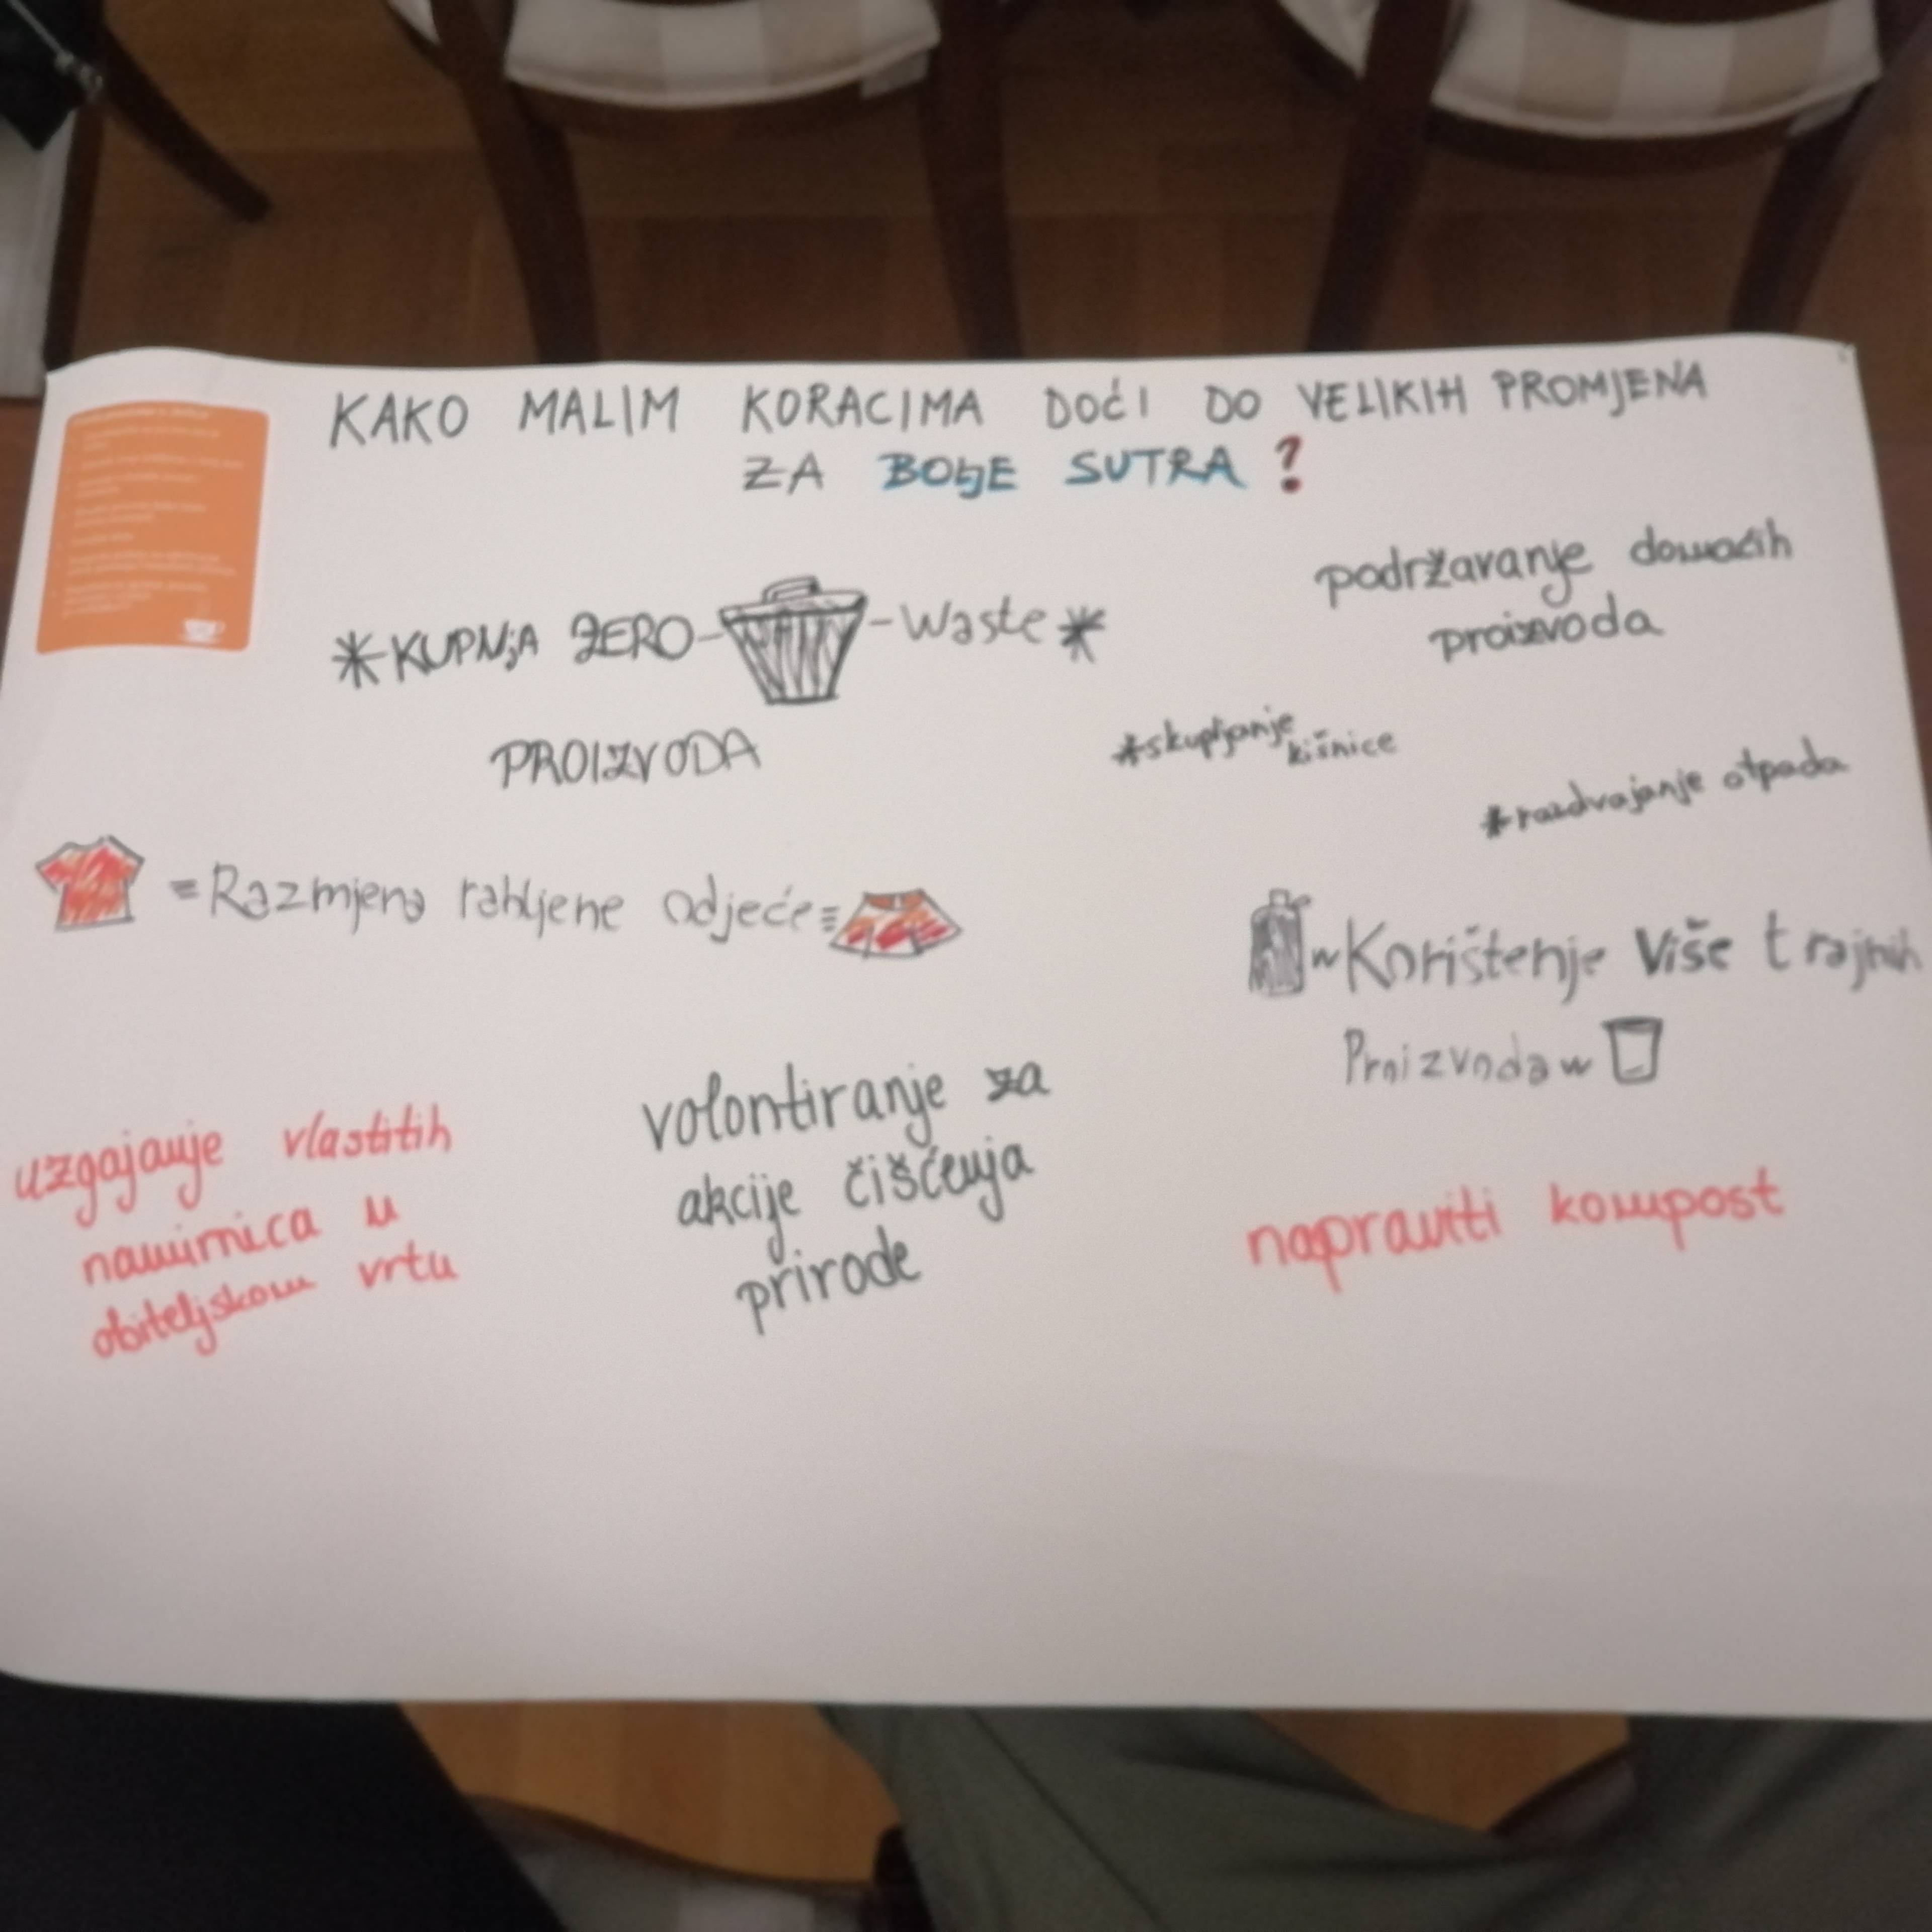 KAKO MALIM KORACIMA DOĆI DO VELIKIH PROMJENA
ZA BOLJE SUTRA ?
*KUPNjA ZERO - - Waste *
PROIZVODA
podržavanje domaćih
proizvoda
*skupljanje
kišnice
*razdvajanje otpada
= Razmjena rabljene odjeće =
Korištenje Više trajnih
Proizvoda
uzgajanje vlastitih
namirnica u
obiteljskom vrtu
volontiranje za
akcije čišćenja
prirode
napraviti kompost